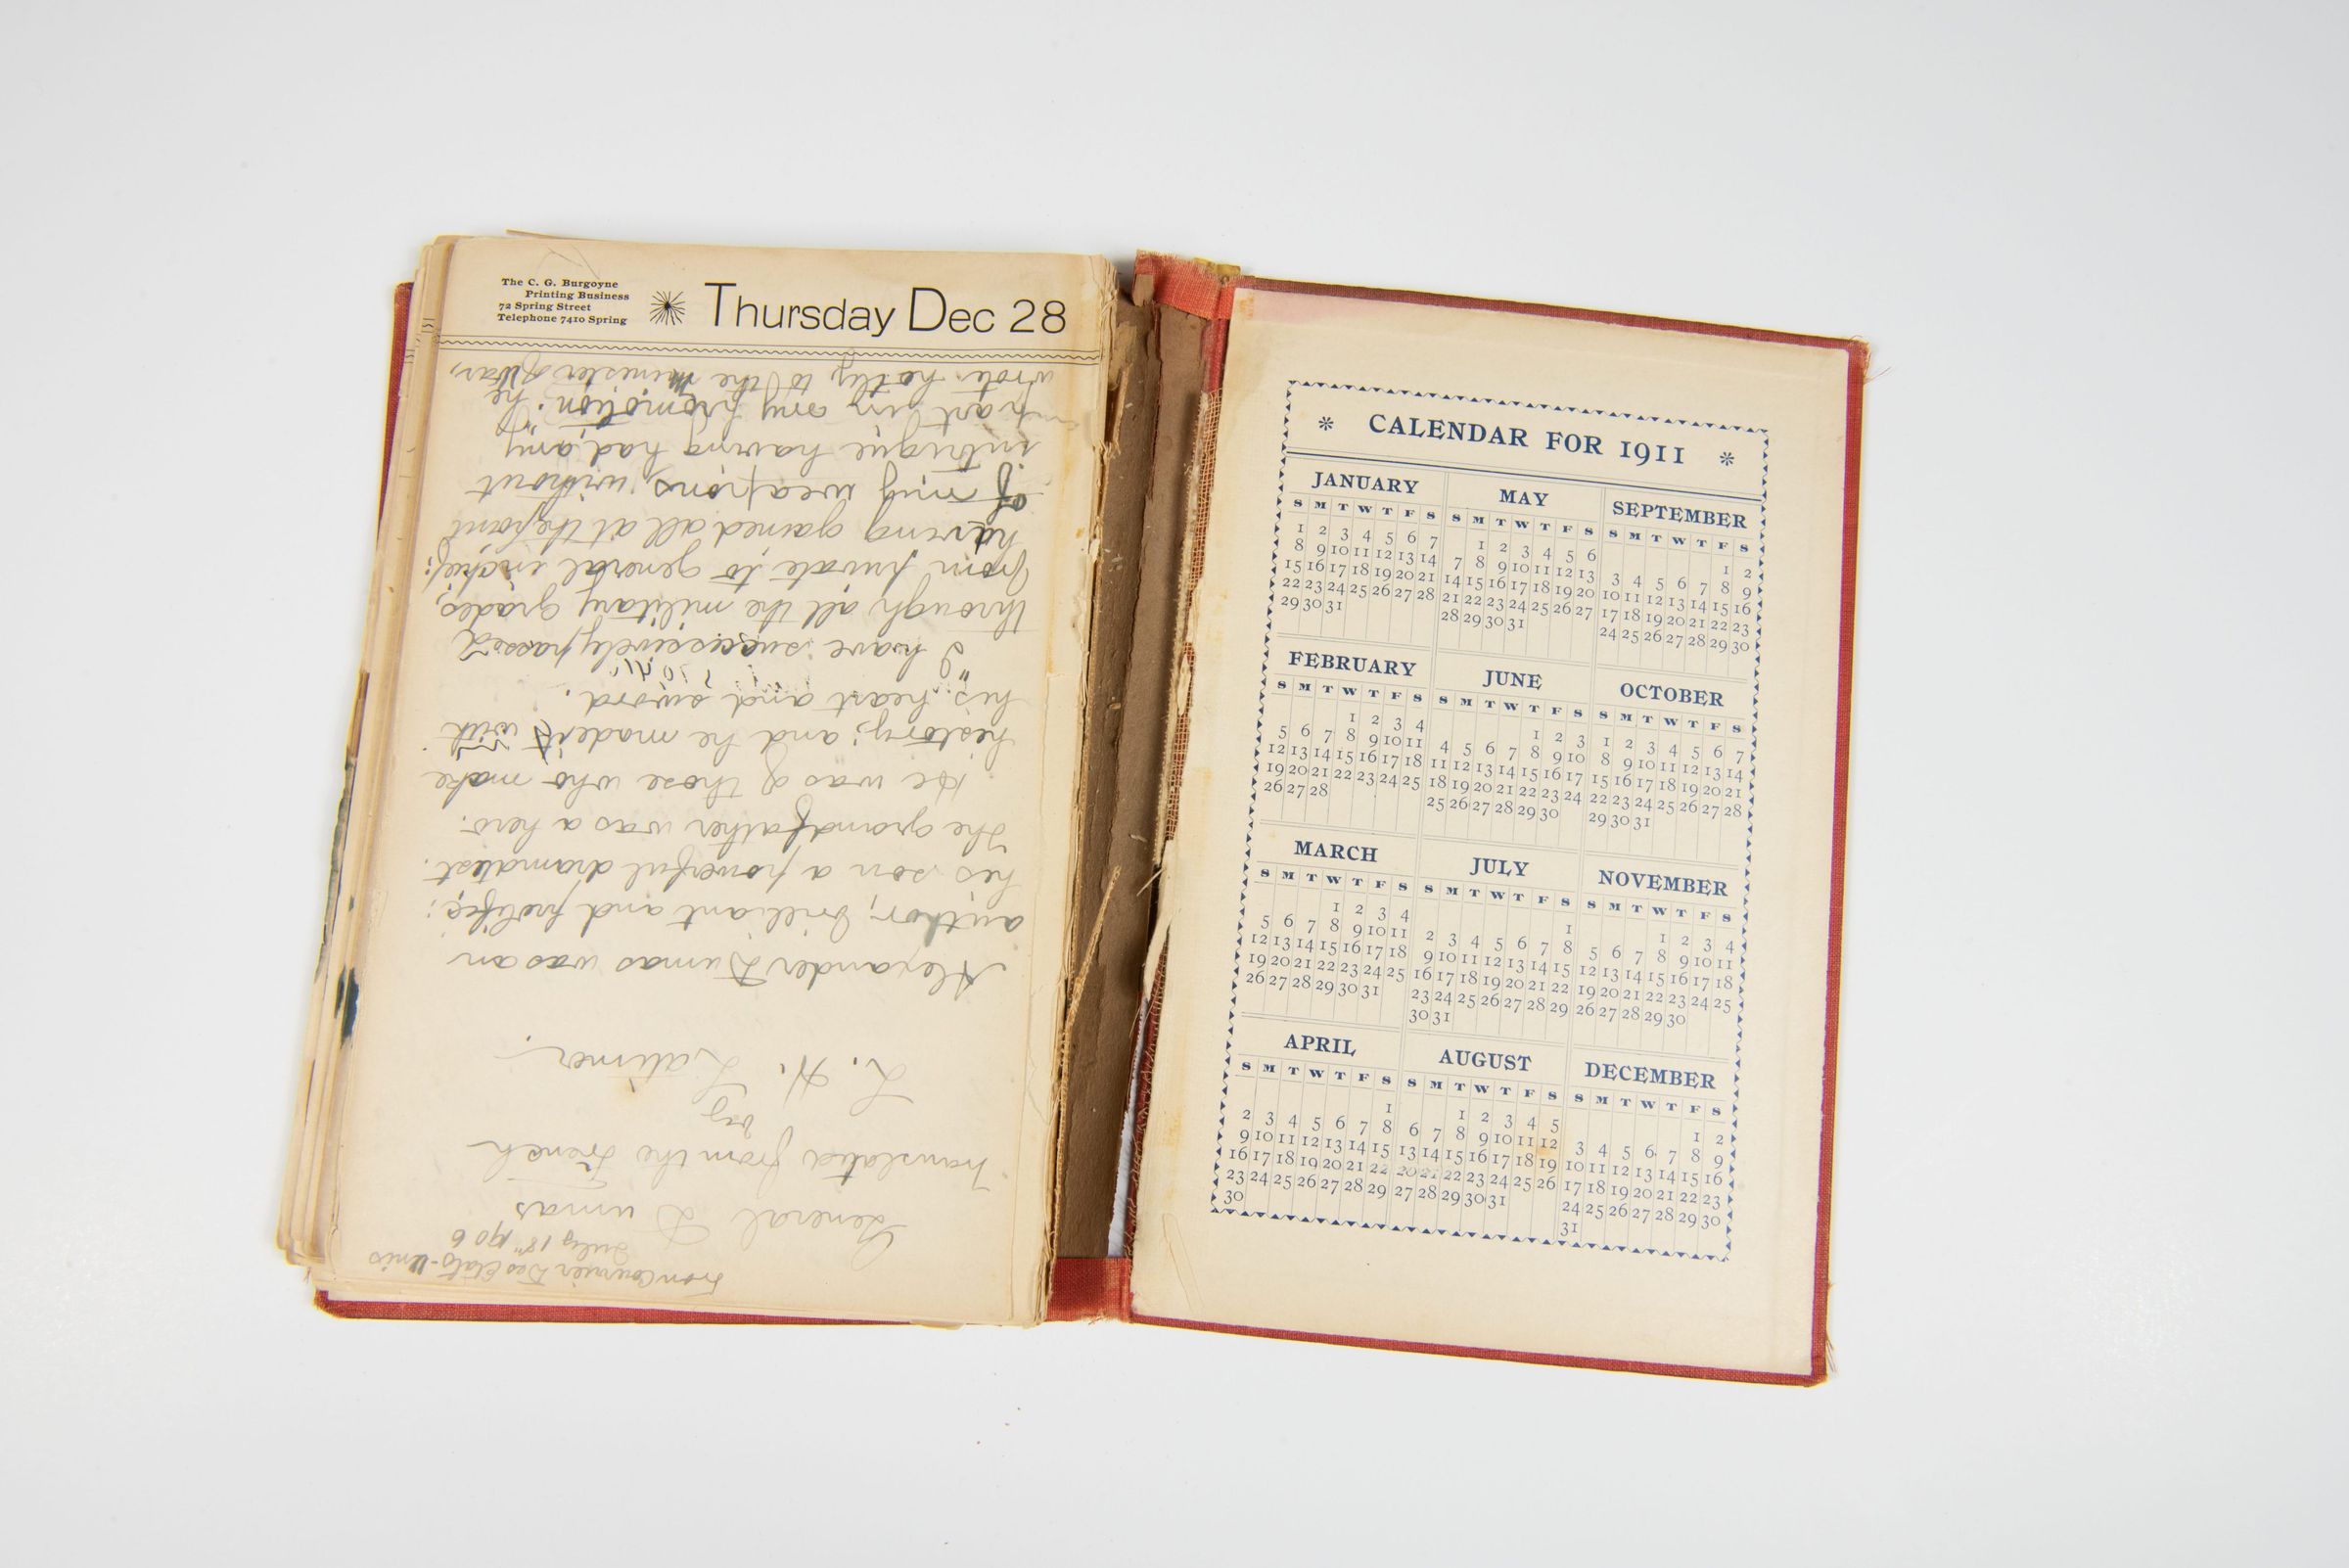 The C. G. Burgoyne
Printing Business
72 Spring Street
Telephone 7410 Spring
Thursday Dec 28
From Courrier Des Etats-Unis
July 18" 1906
General Dumas
Translated from the French
by
L. H. Latimer.
Alexander Dumas was an
author; brilliant and prolific;
his son a powerful dramatist.
The grandfather was a hero.
He was of those who make
history; and he made it with
his heart and sword.
"I have successively passed
through all the military grades,
from private to general in chief;
having gained all at the point
of my weapons, without
intrigue having had any
part in my promotion." he
wrote hotly to the minister of War,
CALENDAR FOR 1911
JANUARY
S M T W T F S
1 2 3 4 5 6 7
8 9 10 11 12 13 14
15 16 17 18 19 20 21
22 23 24 25 26 27 28
29 30 31
FEBRUARY
S M T W T F S
1 2 3 4
5 6 7 8 9 10 11
12 13 14 15 16 17 18
19 20 21 22 23 24 25
26 27 28
MARCH
S M T W T F S
1 2 3 4
5 6 7 8 9 10 11
12 13 14 15 16 17 18
19 20 21 22 23 24 25
26 27 28 29 30 31
APRIL
S M T W T F S
1
2 3 4 5 6 7 8
9 10 11 12 13 14 15
16 17 18 19 20 21 22
23 24 25 26 27 28 29
30
MAY
S M T W T F S
1 2 3 4 5 6
7 8 9 10 11 12 13
14 15 16 17 18 19 20
21 22 23 24 25 26 27
28 29 30 31
JUNE
S M T W T F S
1 2 3
4 5 6 7 8 9 10
11 12 13 14 15 16 17
18 19 20 21 22 23 24
25 26 27 28 29 30
JULY
S M T W T F S
1
2 3 4 5 6 7 8
9 10 11 12 13 14 15
16 17 18 19 20 21 22
23 24 25 26 27 28 29
30 31
AUGUST
S M T W T F S
1 2 3 4 5
6 7 8 9 10 11 12
13 14 15 16 17 18 19
20 21 22 23 24 25 26
27 28 29 30 31
SEPTEMBER
S M T W T F S
1 2
3 4 5 6 7 8 9
10 11 12 13 14 15 16
17 18 19 20 21 22 23
24 25 26 27 28 29 30
OCTOBER
S M T W T F S
1 2 3 4 5 6 7
8 9 10 11 12 13 14
15 16 17 18 19 20 21
22 23 24 25 26 27 28
29 30 31
NOVEMBER
S M T W T F S
1 2 3 4
5 6 7 8 9 10 11
12 13 14 15 16 17 18
19 20 21 22 23 24 25
26 27 28 29 30
DECEMBER
S M T W T F S
1 2
3 4 5 6 7 8 9
10 11 12 13 14 15 16
17 18 19 20 21 22 23
24 25 26 27 28 29 30
31